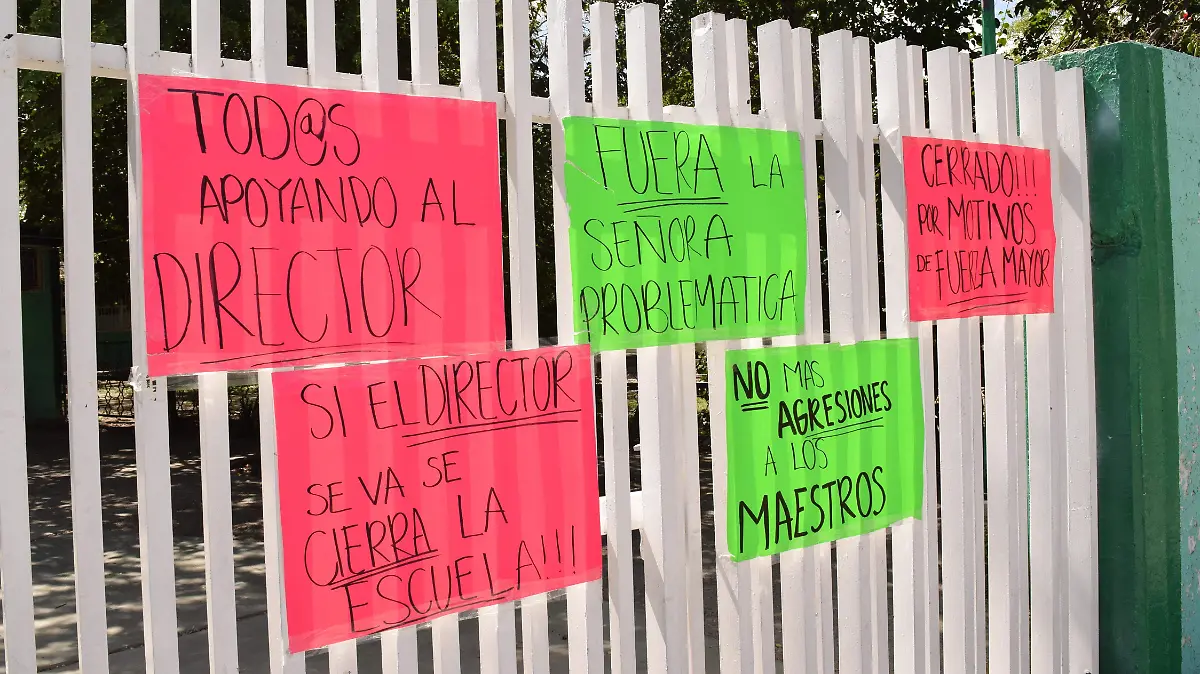 TOD@S
APOYANDO AL
DIRECTOR
FUERA LA
SEÑORA
PROBLEMATICA
CERRADO!!!
POR MOTIVOS
DE FUERZA MAYOR
SI EL DIRECTOR
SE VA SE
CIERRA LA
ESCUELA!!!
NO MAS
AGRESIONES
A LOS
MAESTROS